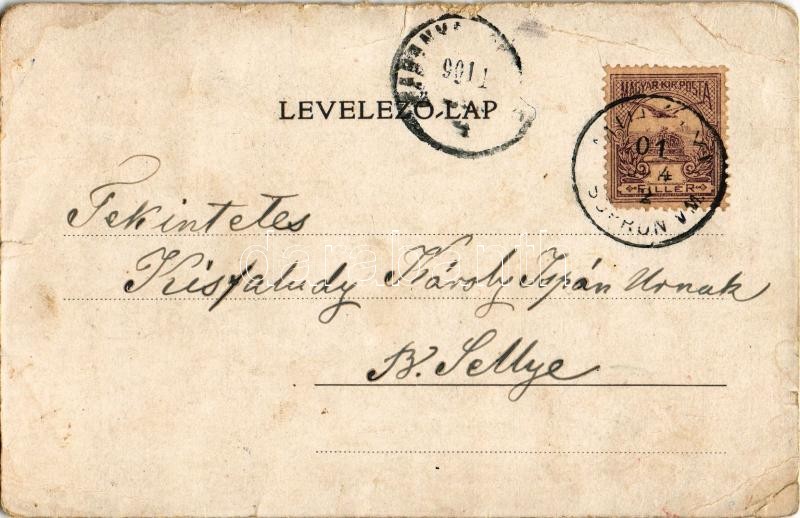 LEVELEZŐ-LAP
MAGYAR KIR. POSTA
FILLÉR
01
4
SOPRON VM
Tekintetes
Kisfaludy Károly Ispán Urnak
B. Sellye